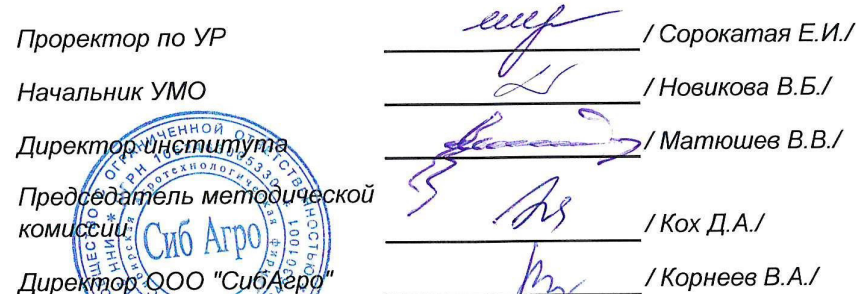 Проректор по УР / Сорокатая Е.И./
Начальник УМО / Новикова В.Б./
Директор института / Матюшев В.В./
Председатель методической
комиссии / Кох Д.А./
Директор ООО "СибАгро" / Корнеев В.А./
Сиб Агро